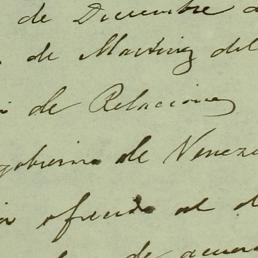 de Diciembre d
de Martinez del
de Relaciones
gobierno de Venezu
ofrece al d
de acuer